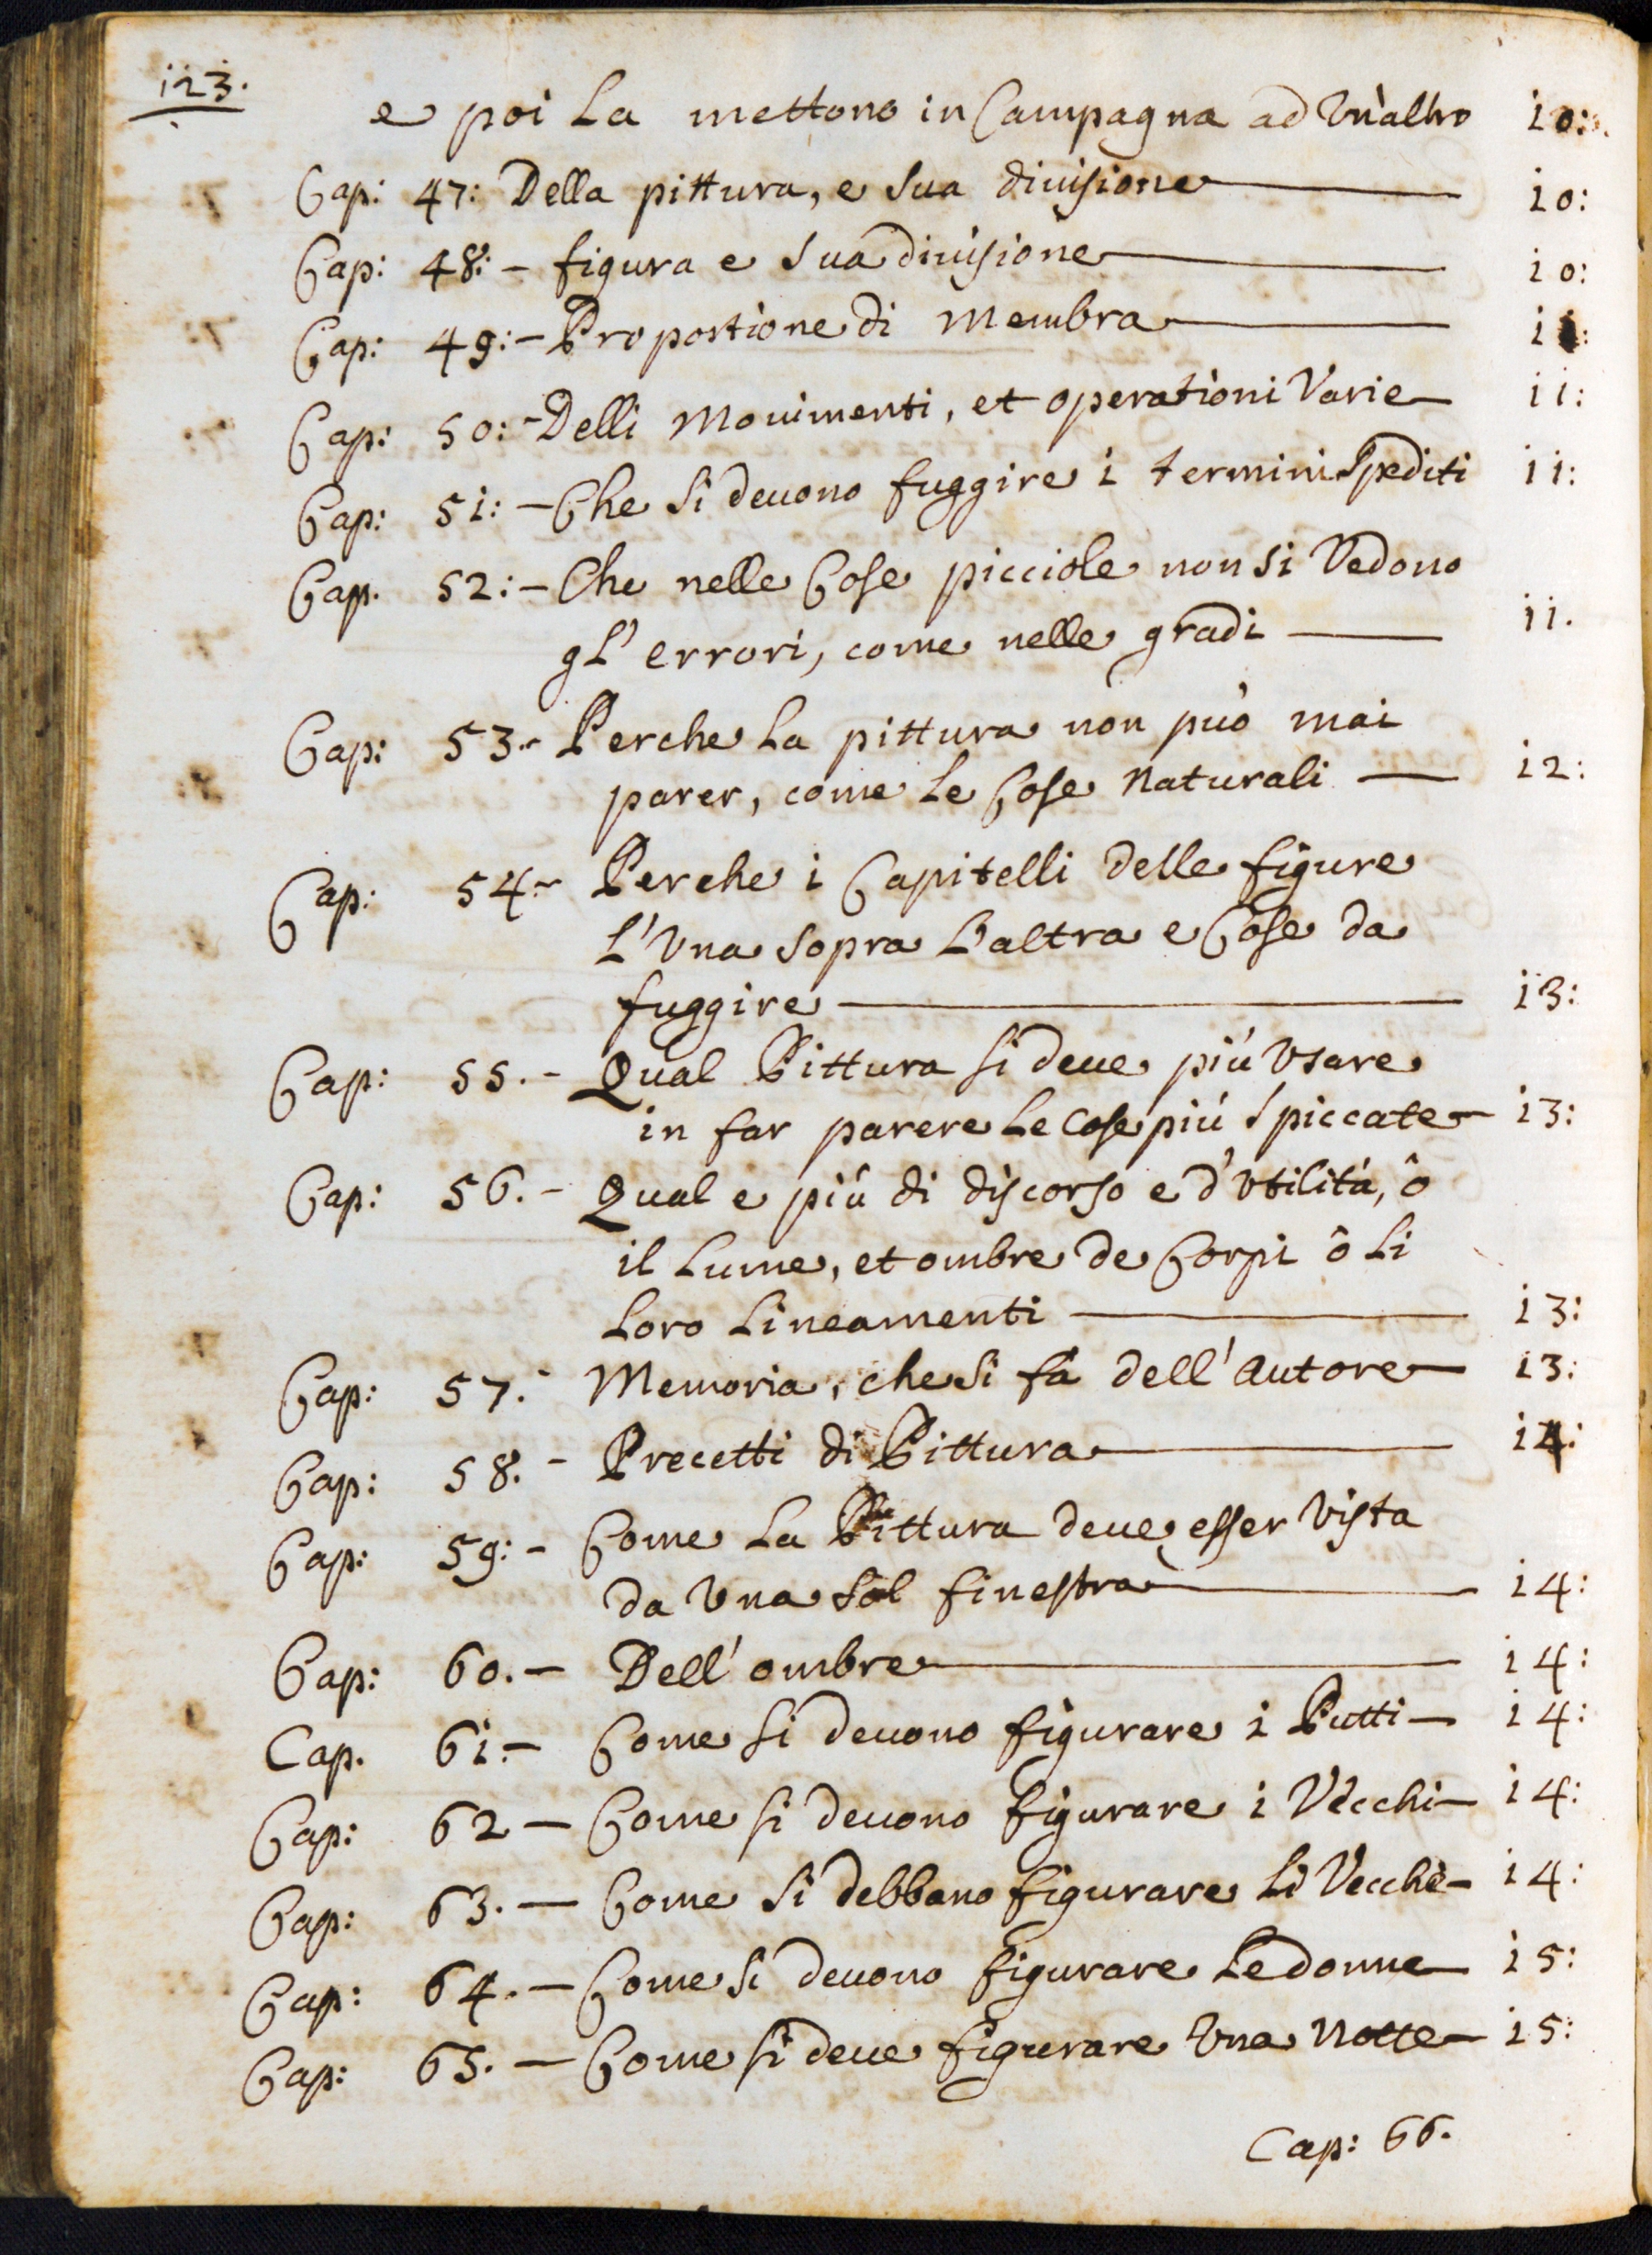 123.
e poi La mettono in Campagna ad Vn'altro 10:
Cap: 47: Della pittura, e sua diuisione 10:
Cap: 48: - figura e sua diuisione 10:
Cap: 49: - Proportione di Membra 11:
Cap: 50: - Delli Mouimenti, et operationi Varie 11:
Cap: 51: - Che si deuono fuggire i termini Spediti 11:
Cap. 52: - Che nelle Cose picciole non si Vedono
gl' errori, come nelle gradi 11.
Cap: 53.- Perche La pittura non può mai
parer, come Le Cose Naturali 12:
Cap: 54.- Perche i Capitelli delle figure
L'Vna sopra L'altra e Cose da
fuggire 13:
Cap: 55.- Qual Pittura si deue più Vsare
in far parere Le Cose più Spiccate 13:
Cap: 56.- Qual e più di discorso e d'Vtilità, ô
il Lume, et ombre de Corpi ô Li
Loro Lineamenti 13:
Cap: 57.- Memoria, che si fà dell'Autore 13:
Cap: 58.- Precetti di Pittura 14:
Cap: 59: - Come La Pittura deue esser Vista
da Vna sol finestra 14:
Cap: 60.- Dell'ombre 14:
Cap. 61.- Come si deuono figurare i Putti 14:
Cap: 62 - Come si deuono figurare i Vecchi 14:
Cap: 63. - Come si debbano figurare Li Vecchie 14:
Cap: 64. - Come si deuono figurare Le donne 15:
Cap: 65. - Come si deue figurare Vna Notte 15:
Cap: 66.